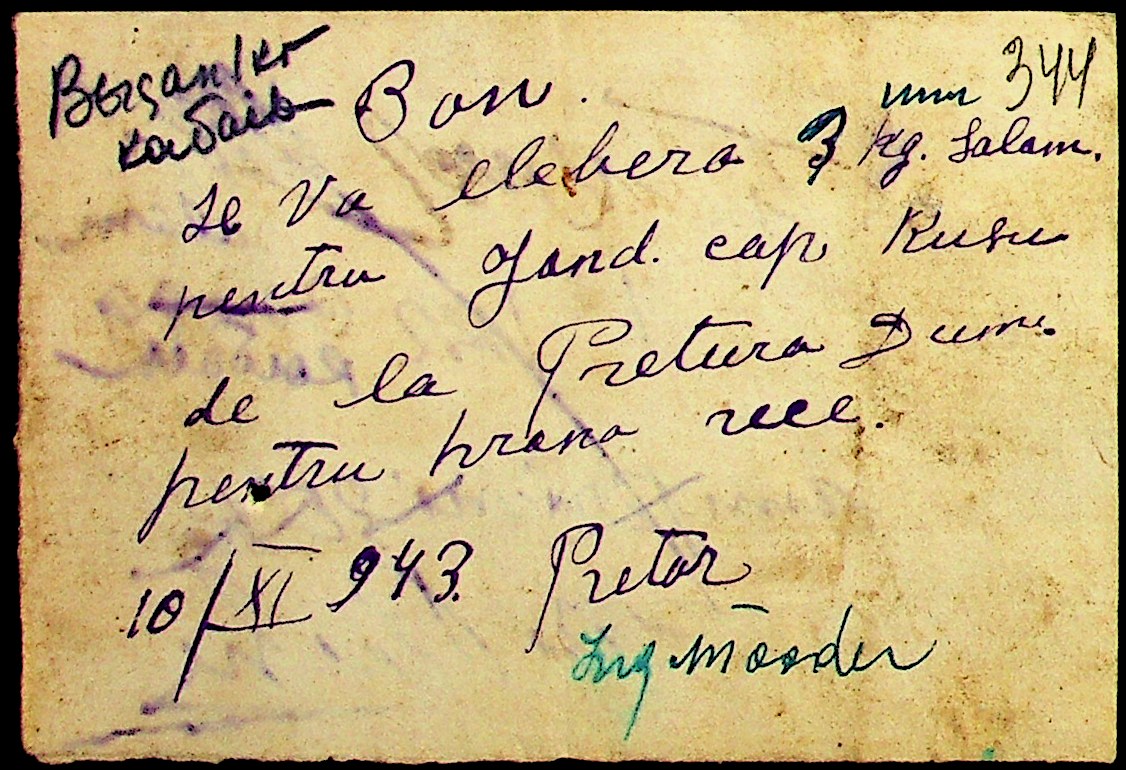 344
колбаів
Bon.
Se va elebera 3 kg. Salam.
pentru Jand. cap Rusu
de la Pretura Dum.
pentru hrana rece.
10/XI 943. Pretor
Ing.